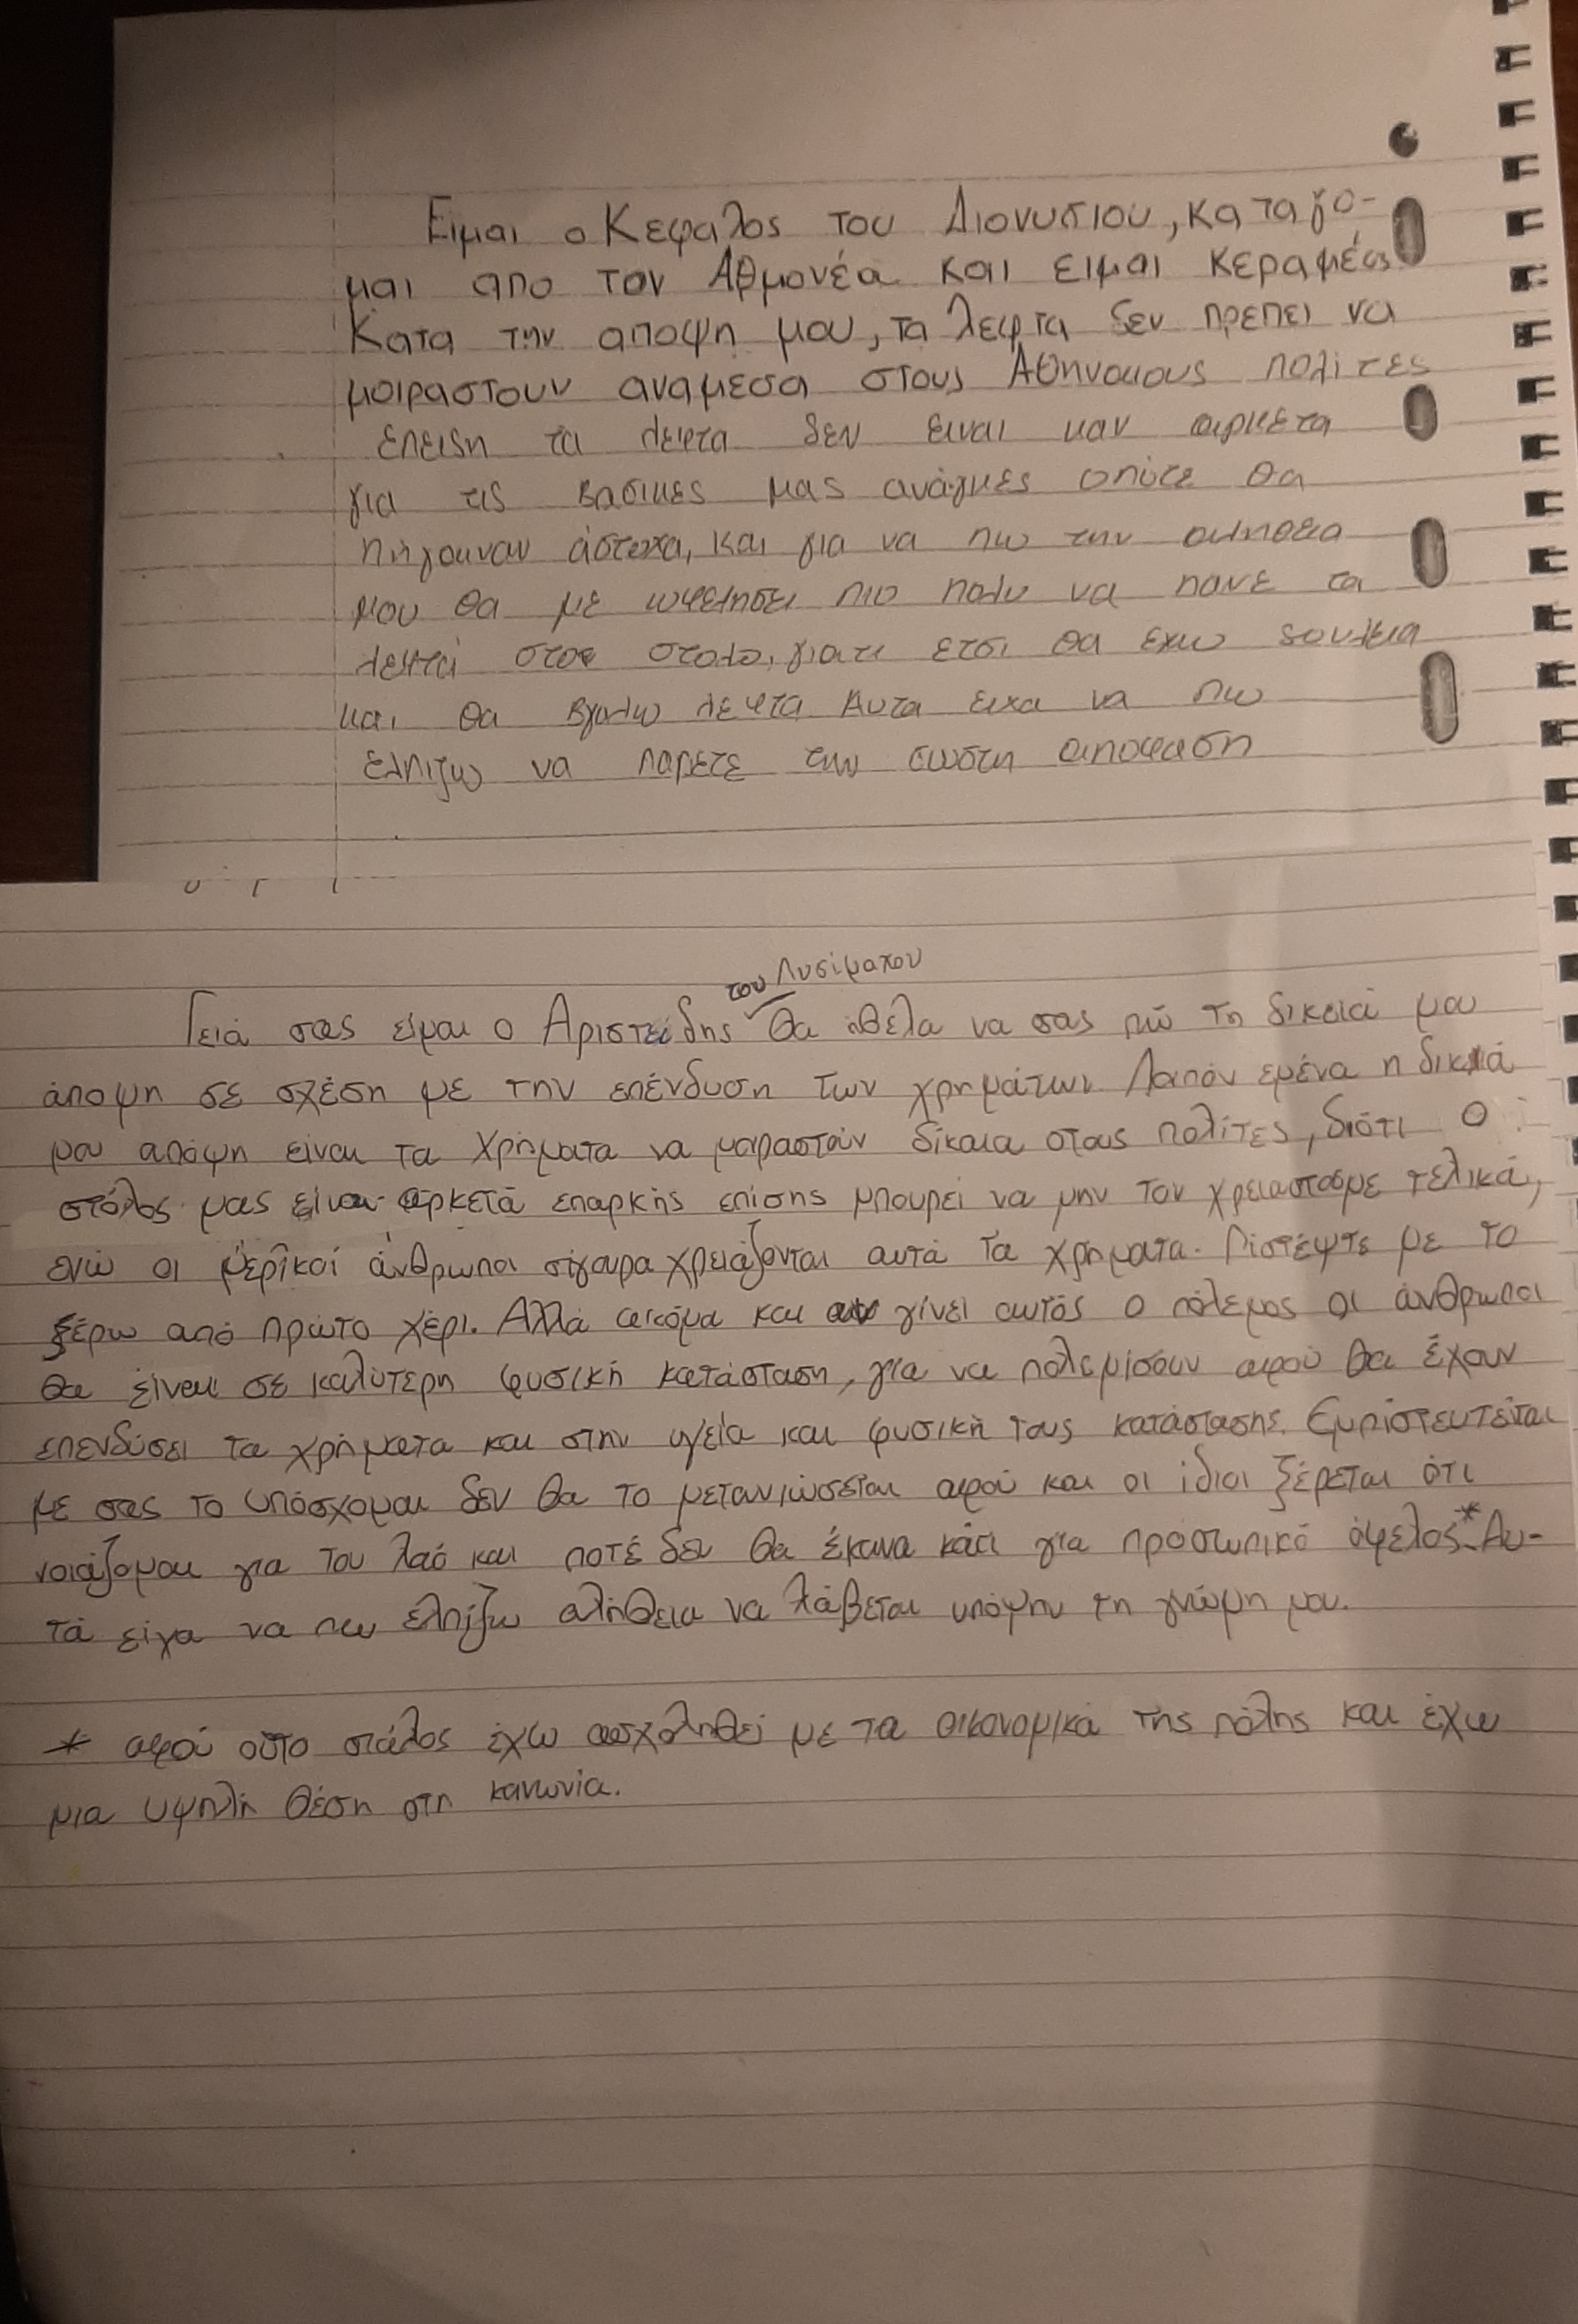 Ειμαι ο Κεφαλος του Διονυσιου, καταγο-
μαι απο τον Αρμονέα και ειμαι κεραμέας
Κατα την αποψη μου, τα λεφτα δεν πρεπει να
μοιραστουν αναμεσα στους Αθηναιους πολιτες
επειδη τα λεφτα δεν ειναι καν αρκετα
για τις βασικες μας ανάγκες οπότε θα
πήγαιναν άστοχα, και για να πω την αληθεια
μου θα με ωφελησει πιο πολυ να πανε τα
λεφτά στο στολο, γιατι ετσι θα εχω δουλεια
και θα βγαλω λεφτα Αυτα ειχα να πω
ελπιζω να παρετε την σωστη αποφαση
του Λυσίμαχου
Γειά σας είμαι ο Αριστείδης θα ήθελα να σας πώ τη δικειά μου
άποψη σε σχέση με την επένδυση των χρημάτων. Λοιπόν εμένα η δικιά
μου απόψη είναι τα χρήματα να μοιραστούν δίκαια στους πολίτες, διότι ο
στόλος μας είναι αρκετά επαρκής επίσης μπορεί να μην τον χρειαστούμε τελικά,
ενώ οι μερικοί άνθρωποι σίγουρα χρειάζονται αυτά τα χρήματα. Πιστέψτε με το
ξέρω από πρώτο χέρι. Αλλά ακόμα και αν γίνει αυτός ο πόλεμος οι άνθρωποι
θα είναι σε καλύτερη φυσική κατάσταση, για να πολεμίσουν αφού θα έχουν
επενδύσει τα χρήματα και στην υγεία και φυσική τους κατάστασης. Εμπιστευτείται
με σας το υπόσχομαι δεν θα το μετανιώσεται αφού και οι ίδιοι ξέρεται ότι
νοιάζομαι για τον λαό και ποτέ δεν θα έκανα κάτι για προσωπικό όφελος.* Αυ-
τά είχα να πω ελπίζω αλήθεια να λάβεται υπόψην τη γνώμη μου.
* αφού στο στόλος έχω ασχοληθεί με τα οικονομικά της πόλης και έχω
μια υψηλή θέση στη κοινωνία.